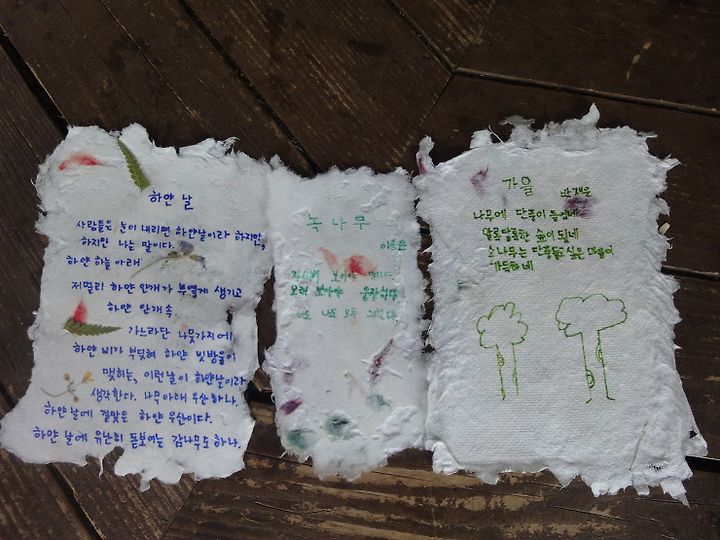 하얀 날
사람들은 눈이 내리면 하얀날이라 하지만,
하지만 나는 말이다.
하얀 하늘 아래
저멀리 하얀 안개가 부옇게 생기고
하얀 안개 속
가느라단 나뭇가지에
하얀 비가 부딪혀 하얀 빗방울이
맺히는, 이런날이 하얀날이라
생각한다. 나무아래 우산 하나.
하얀 날에 걸맞은 하얀 우산이다.
하얀 날에 유난히 돋보이는 감나무도 하나.
녹나무
자세히 보아야
오래 보아야 웅장하다
너도 나도 모두 그렇다.
가을
나무에 단풍이 들었네
알록달록한 숲이 되네
소나무는 단풍들고 싶은 마음이
가득하네